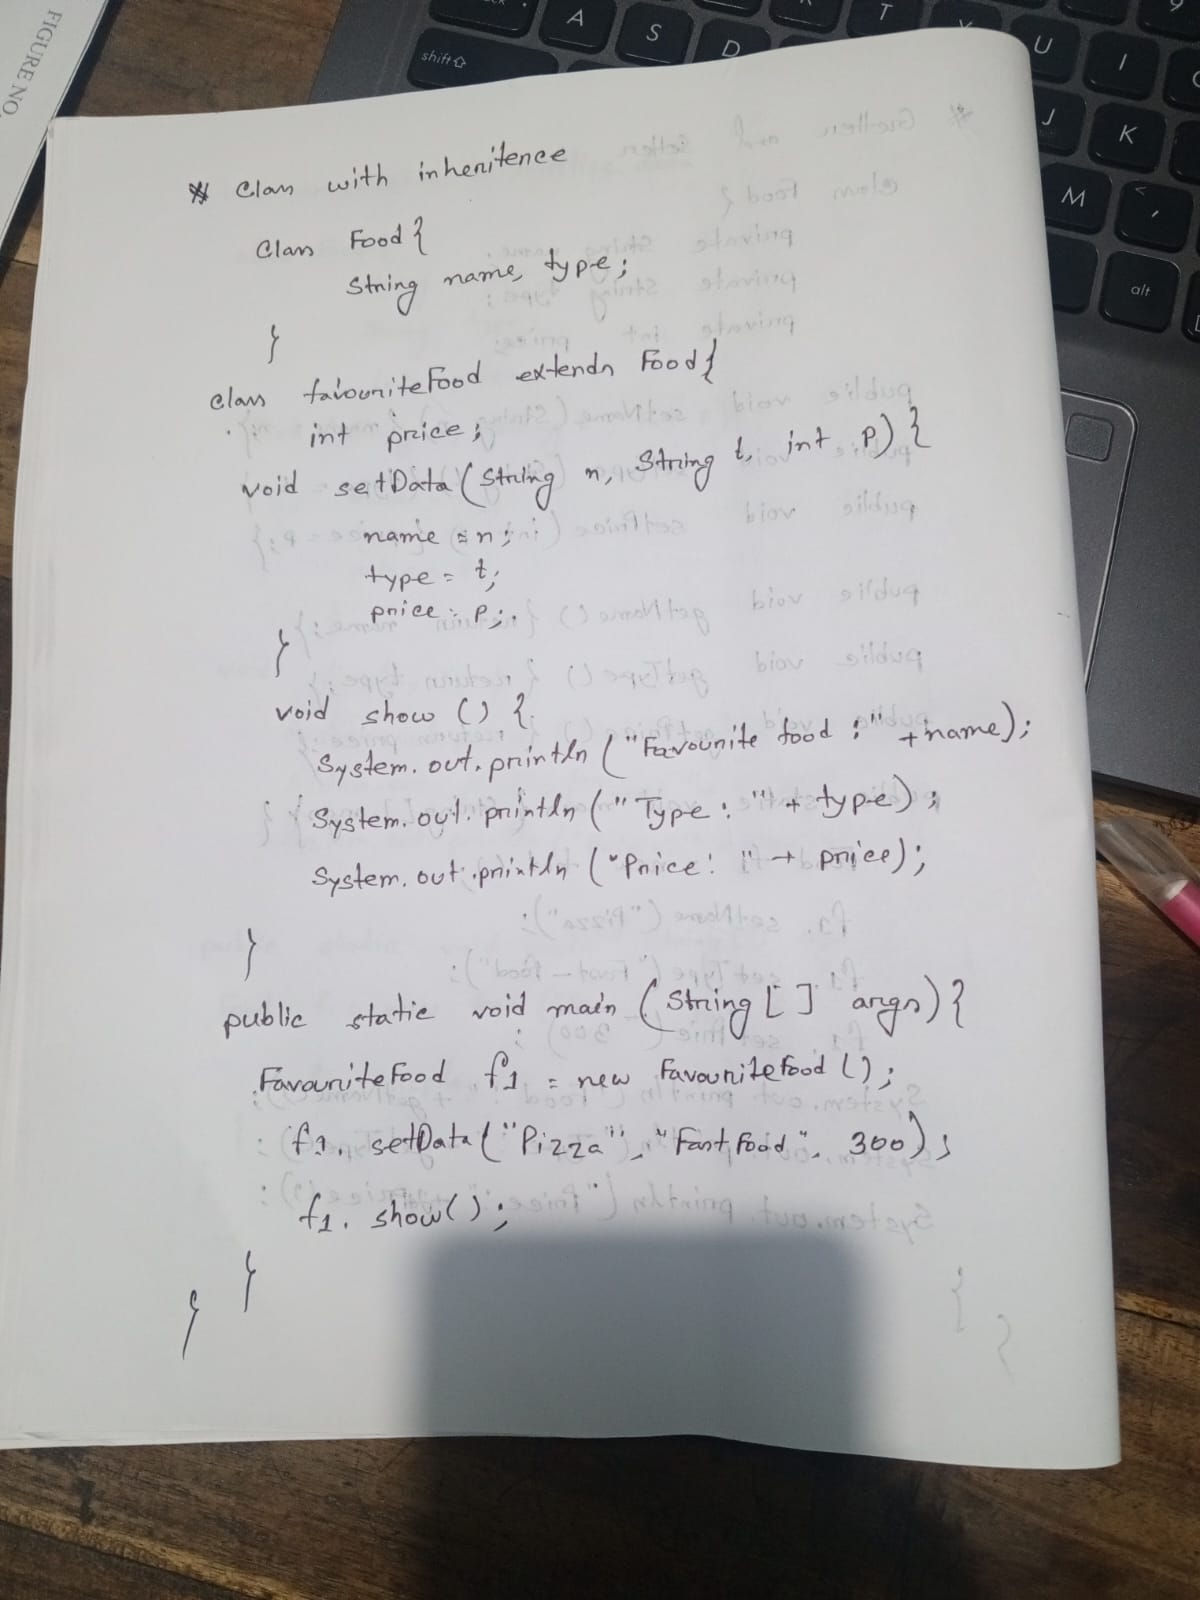 FIGURE NO.
* Class with inheritence
Class Food {
String name, type;
}
class favouriteFood extends Food {
int price;
void setData (String n, String t, int p) {
name = n;
type = t;
price = p;
}
void show () {
System.out.println ("Favourite food :" +name);
System.out.println (" Type : " + type) ;
System.out.println ("Price: " + price);
}
public static void main (String [ ] args) {
FavouriteFood f1 = new FavouriteFood ();
f1. setData ("Pizza", "Fast Food", 300);
f1. show();
}
}
A
S
D
T
U
I
J
K
M
<
,
alt
shift